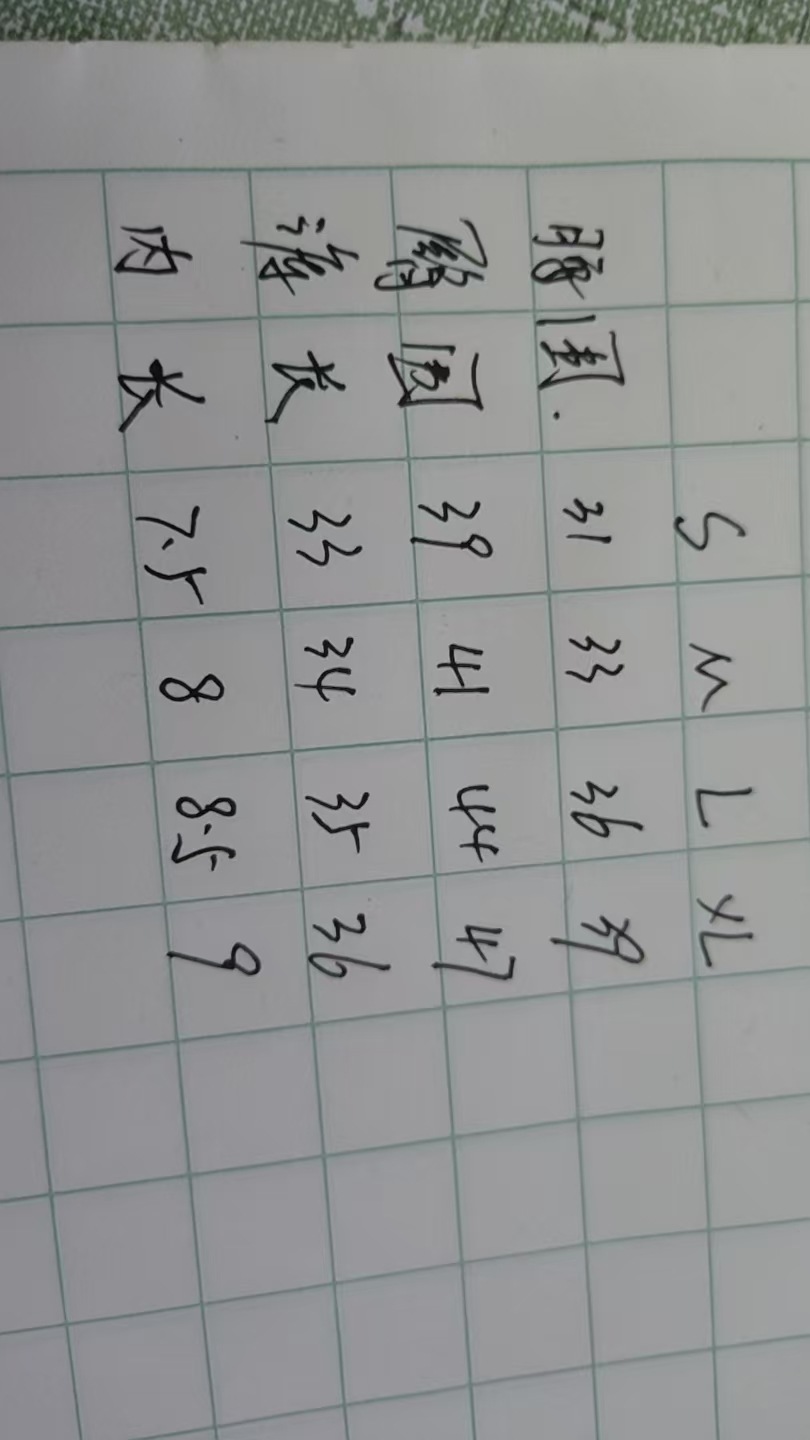 S M L XL
腰围. 31 33 36 39
臀围 39 41 44 47
长 33 34 35 36
内长 7.5 8 8.5 9